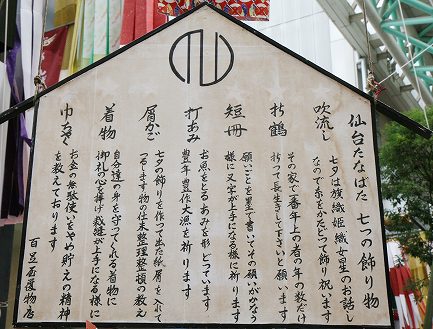 仙台たなばた 七つの飾り物
吹流し
七夕は旗織姫織女星のお話し
なので 糸をかたどって飾り祝います
折鶴
その家で一番年上の者の年の数だけ
折って長生きして下さいと願います
短冊
願いごとを墨で書いてその願いがかなう
様に又字が上手になる様に祈ります
打あみ
お魚をとるあみを形どっています
豊年豊作大漁を祈ります
屑かご
七夕の飾りを作って出た紙屑を入れて
つるします 物の仕末整理整頓の教え
着物
自分達の身を守ってくれる着物に
御礼の心を捧げ裁縫が上手になる様に
巾ちゃく
お金の無駄使いをいめ貯えの精神
を教えております
百足屋履物店